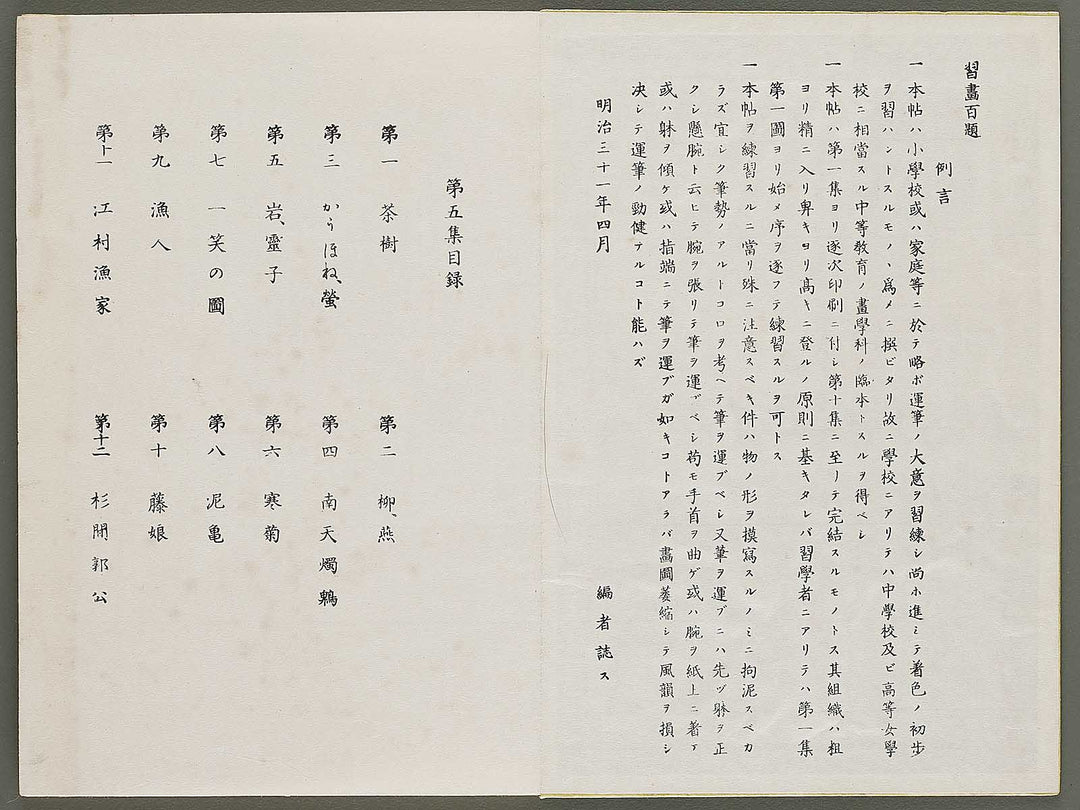 習畫百題
例言
一 本帖ハ小學校或ハ家庭等ニ於テ略ボ運筆ノ大意ヲ習練シ尚ホ進ミテ着色ノ初步
ヲ習ハントスルモノヽ爲メニ撰ビタリ故ニ學校ニアリテハ中學校及ビ高等女學
校ニ相當スル中等教育ノ畫學科ノ臨本トスルヲ得ベシ
一 本帖ハ第一集ヨリ逐次印刷ニ付シ第十集ニ至リテ完結スルモノトス其組織ハ粗
ヨリ精ニ入リ卑キヨリ高キニ登ルノ原則ニ基キタレバ習學者ニアリテハ第一集
第一圖ヨリ始メ序ヲ逐フテ練習スルヲ可トス
一 本帖ヲ練習スルニ當リ殊ニ注意スベキ件ハ物ノ形ヲ摸寫スルノミニ拘泥スベカ
ラズ宜シク筆勢ノアルトコロヲ考ヘテ筆ヲ運ブベシ又筆ヲ運ブニハ先ヅ躰ヲ正
クシ懸腕ト云ヒテ腕ヲ張リテ筆ヲ運ブベシ苟モ手首ヲ曲ゲ或ハ腕ヲ紙上ニ著ケ
或ハ躰ヲ傾ケ或ハ指端ニテ筆ヲ運ブガ如キコトアラバ畵圖萎縮シテ風韻ヲ損シ
决シテ運筆ノ勁健ナルコト能ハズ
明治三十一年四月 編者誌ス
第五集目録
第一 茶樹
第二 柳、燕
第三 かうほね、螢
第四 南天燭鶫
第五 岩、靈子
第六 寒菊
第七 一笑の圖
第八 泥亀
第九 漁人
第十 藤娘
第十一 江村漁家
第十二 杉間郭公